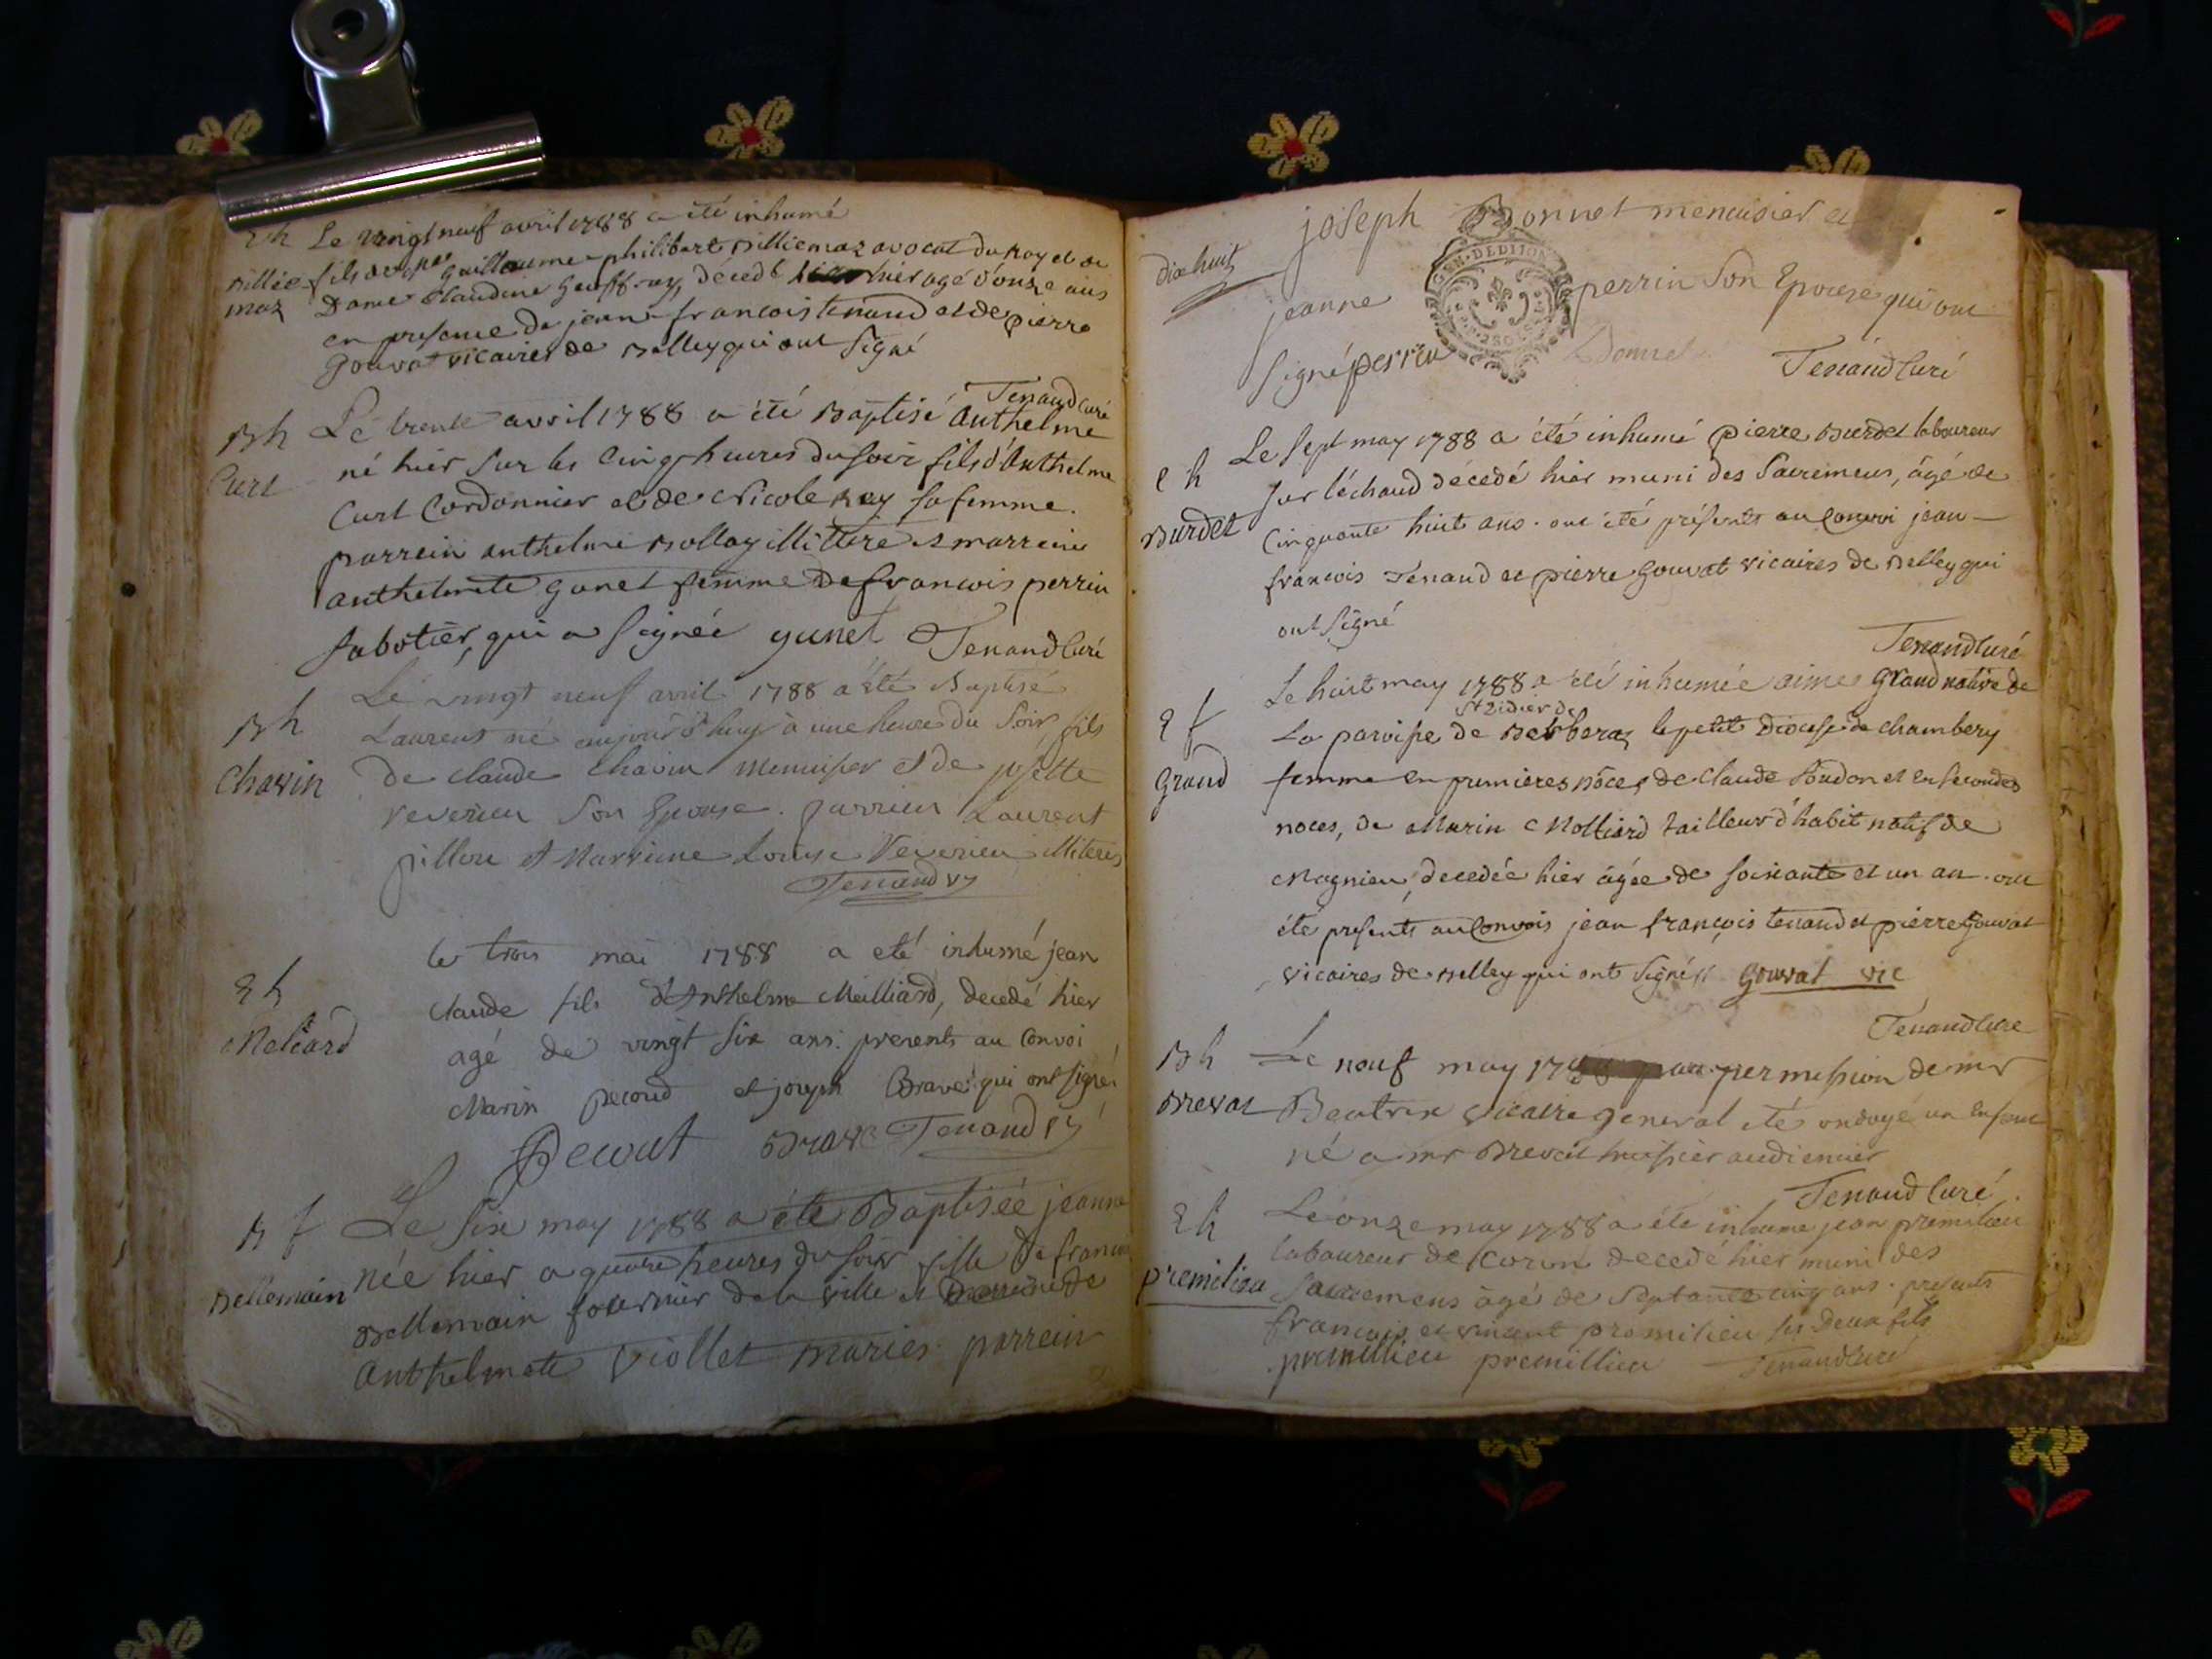 Eh Le vingt neuf avril 1788 a été inhumé
Billie- fils de guillaume philibert Billiemaz avocat du Roy et de
maz Dame Claudine Geuffray, decedé hier agé d'onze ans
en presence de jean-francois tenand et de pierre
Gouvat vicaires de Belley qui ont signé
Tenand Curé
Bh Le trente avril 1788 a été Baptisé Anthelme
Curt né hier sur les cinq heures du soir fils d'Anthelme
Curt Cordonnier et de Nicole Rey sa femme.
parrein anthelme Bollay illittéré et marreine
anthelmete gonet femme de francois perrin
sabotier, qui a signée gunet Tenand Curé
Bh Le vingt neuf avril 1788 a été Baptisé
Laurent né aujourd'huy à une heure du soir, fils
Chavin de claude Chavin menuisier et de josette
Reverieu son Epouse. parrien Laurent
pillon et Marriene Louise Veverieu illiteres
Tenand vy
Eh le trois mai 1788 a eté inhumé jean
Meliard claude fils d'Anthelme Meilliard, decedé hier
agé de vingt six ans. presents au convoi
Marin pecoud et joseph Bravet qui ont signé
Pecout Brave Tenand vy
Bf Le six may 1788 a éte Baptisée jeanne
Bellemain née hier a quatre heures du soir fille de francois
Bellemain fournier de la ville et
Anthelmete Viollet mariés. parrein
dix huit
joseph Bonnet menuisier et
jeanne perrin son Epouse qui ont
GEN. DE DIJON
signé perrin Bonnet
Tenand Curé
eh Le sept may 1788 a été inhumé pierre Burdet laboureur
Burdet sur léchaud décedé hier muni des Sacremens, âgé de
Cinquante huit ans. ont été présents au Convoi jean-
francois Tenand et pierre Gouvat vicaires de Belley qui
ont signé
Tenand Curé
Ef Le huit may 1788 a été inhumée aimée Grand native de
St Didier de
La paroisse de Berberaz le petit diocese de chambery
Grand femme en premieres nôces de Claude Soudon et en secondes
noces, de Marin Molliard tailleur d'habit natif de
Magnieu, decedée hier âgée de soixante et un an. ont
éte presents au Convois jean françois tenand et pierre Gouvat
vicaires de Belley qui ont signés Gouvat vic
Tenand Cure
Bh Le neuf may permission de mr
Brevat Beatrix vicaire general eté ondoyé un Enfant
né a mr Brevat huissier audiencier
Tenand Curé
Eh Le onze may 1788 a été inhumé jean premilieu
laboureur de Coron decedé hier muni des
premilieu Sacremens âgé de Septante cinq ans. presents
francois et vincent premilieu ses deux fils
premilieu premillieu Tenand Curé